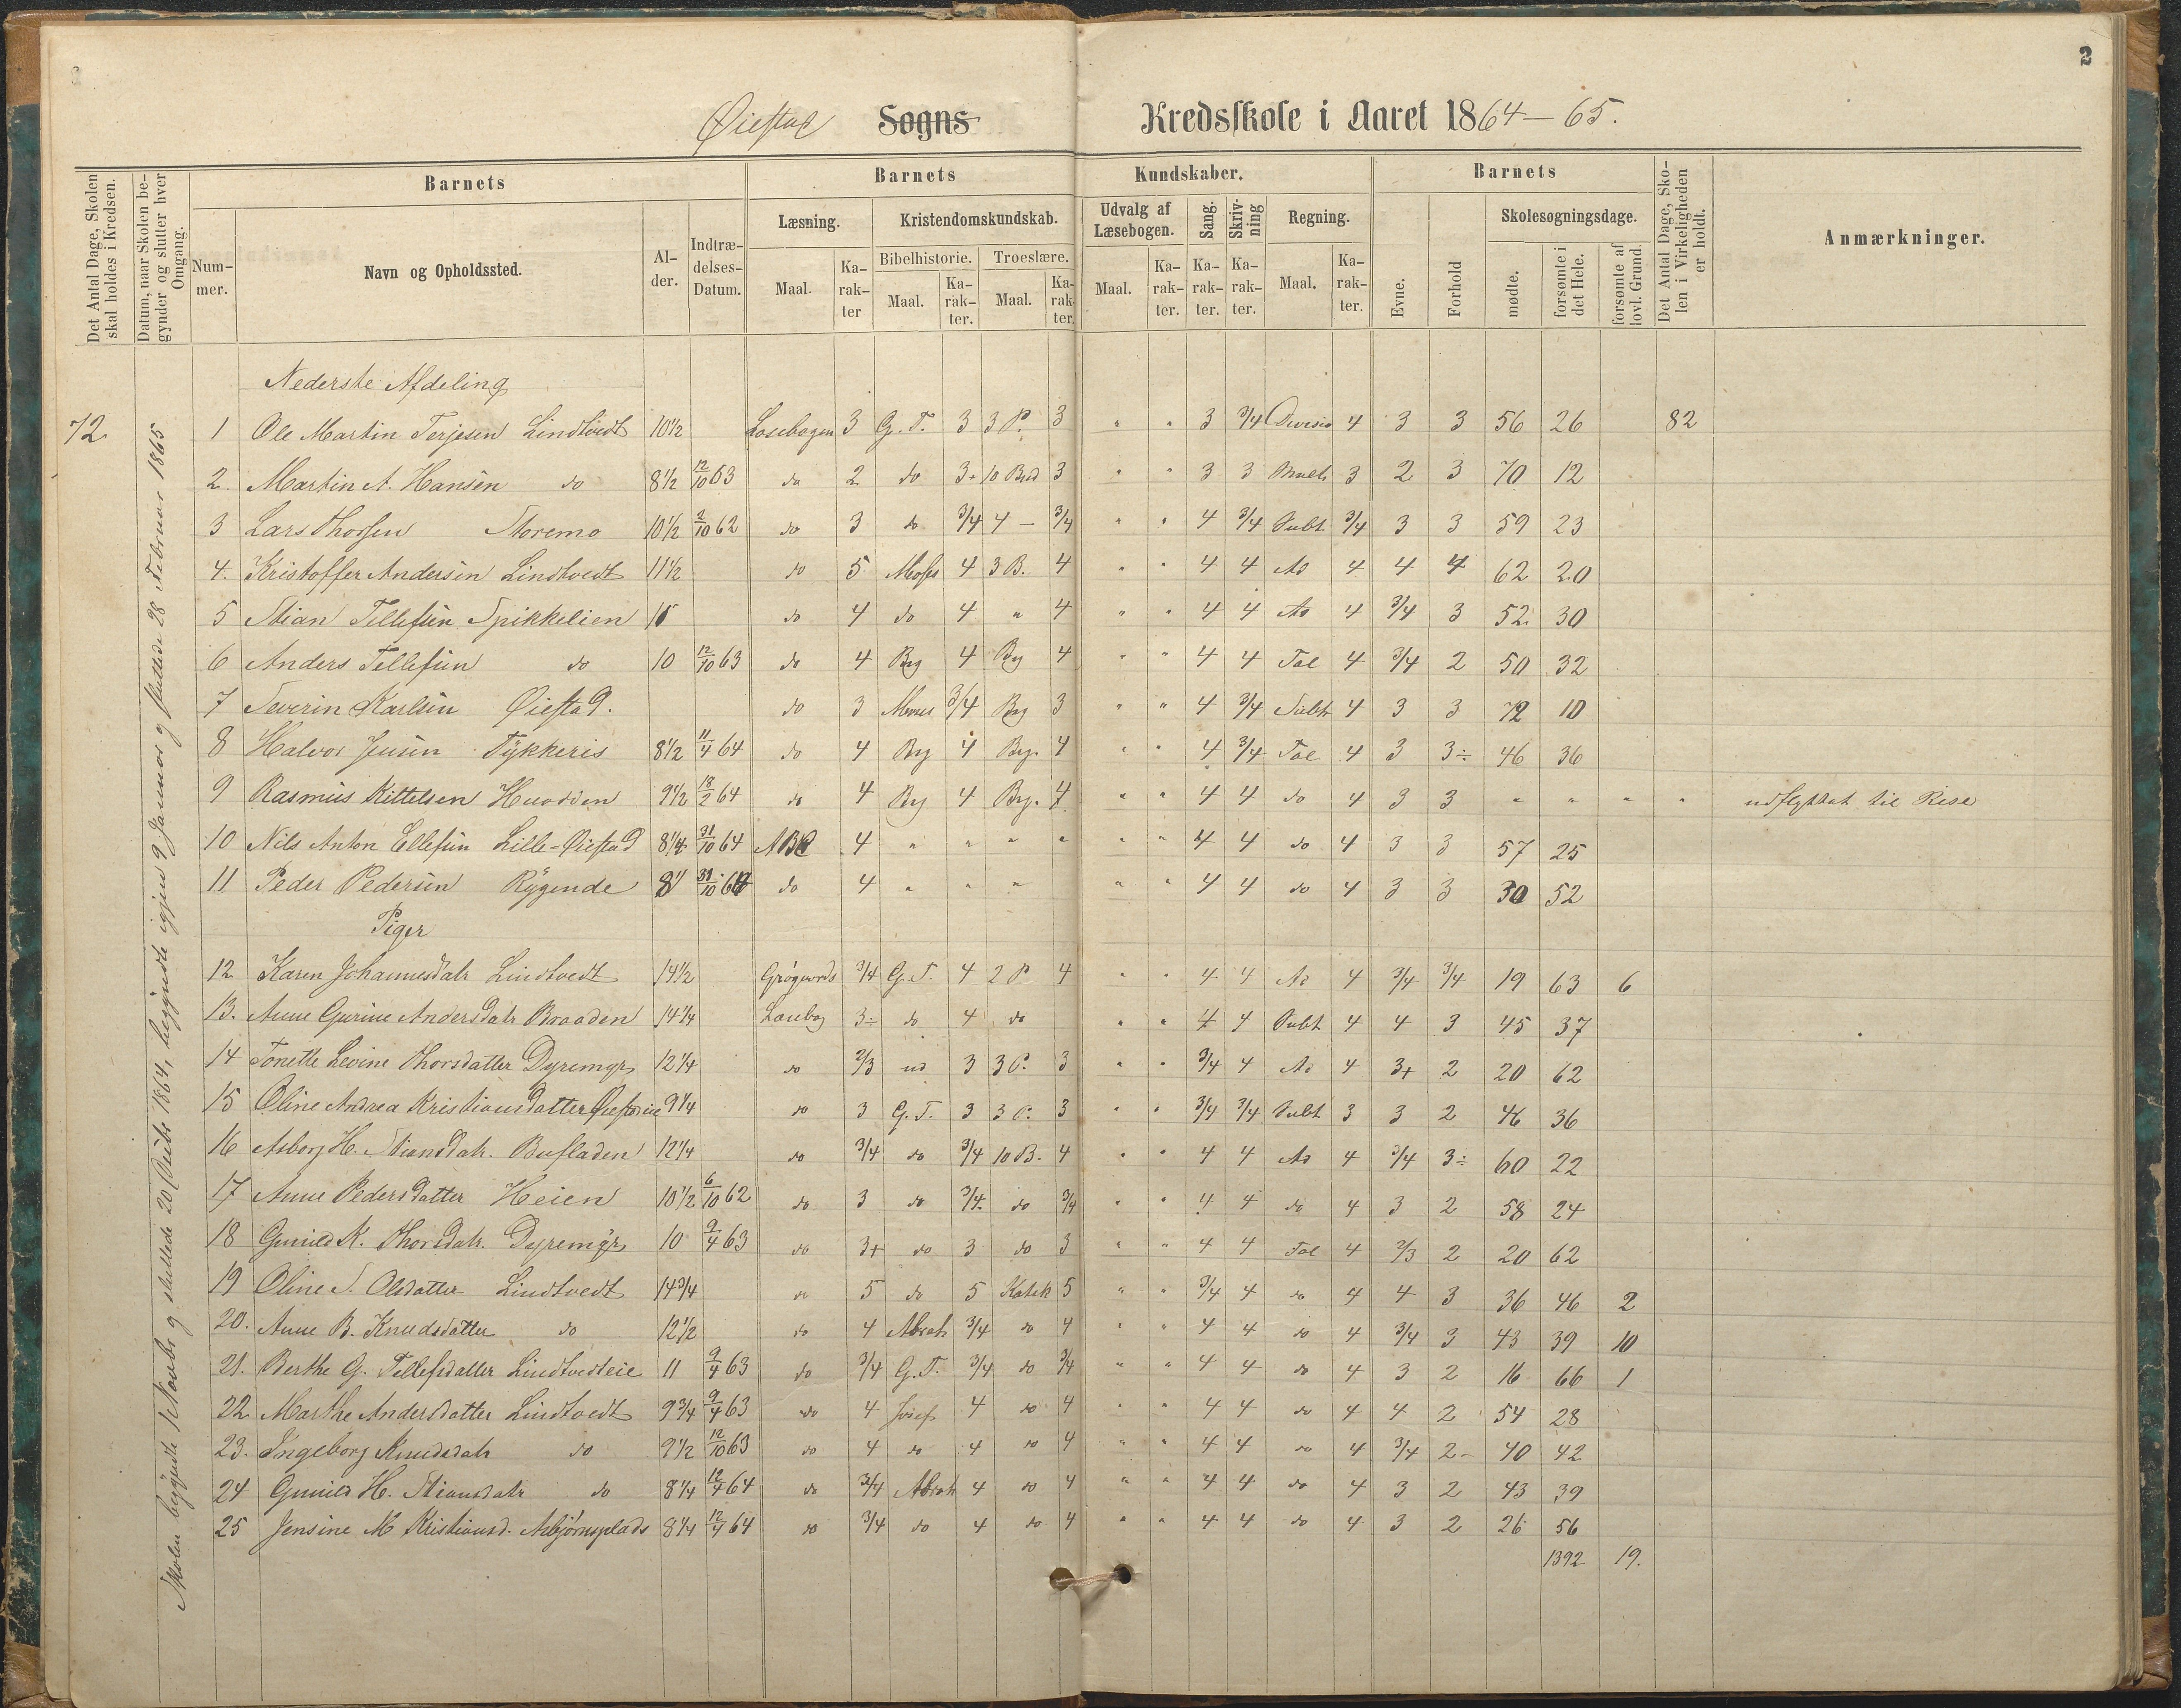 2
Øiestad Sogns Kredsskole i Aaret 1864–65.
Det Antal Dage, Skolen skal holdes i Kredsen.
Datum, naar Skolen begynder og slutter hver Omgang.
Barnets
Nummer.
Navn og Opholdssted.
Alder.
Indtrædelses-Datum.
Barnets Kundskaber.
Læsning.
Maal.
Karakter
Kristendomskundskab.
Bibelhistorie.
Maal.
Karakter.
Troeslære.
Maal.
Karakter.
Udvalg af Læsebogen.
Maal.
Karakter.
Sang.
Karakter.
Skrivning
Karakter.
Regning.
Maal.
Karakter.
Barnets
Evne.
Forhold
Skolesøgningsdage.
mødte.
forsømte i det Hele.
forsømte af lovl. Grund.
Det Antal Dage, Skolen i Virkeligheden er holdt.
Anmærkninger.
Nederste Afdeling
72 1 Ole Martin Terjesen Lindtvedt 10½ Læsebogen 3 G. T. 3 3 P. 3 " " 3 3/4 Division 4 3 3 56 26 82
2. Martin A. Hansen do 8½ 12/10 63 do 2 do 3+ 10 Bud 3 " " 3 3 Mult 3 2 3 70 12
3 Lars Thorsen Storemo 10½ 2/10 62 do 3 do 3/4 4 — 3/4 " " 4 3/4 Subt. 3/4 3 3 59 23
4. Kristoffer Andersen Lindtvedt 11½ do 5 Moses 4 3 B. 4 " " 4 4 Ad 4 4 4 62 20
5 Stian Tellefsen Spikkelien do 4 do 4 " 4 " " 4 4 Ad 4 3/4 3 52 30
6 Anders Tellefsen do 10 12/10 63 do 4 Beg 4 Beg 4 " " 4 4 Tal 4 3/4 2 50 32
7 Severin Karlsen Øiestad. do 3 Moses 3/4 Beg 3 " " 4 3/4 Subtr 4 3 3 72 10
8 Halvor Jensen Tykkeris 8½ 11/4 64 do 4 Beg 4 Beg. 4 " " 4 3/4 Tal 4 3 3÷ 46 36
9 Rasmus Kittelsen 9½ 18/2 64 do 4 Beg 4 Beg. 4 " " 4 4 do 4 3 3 " " " " udflyttet til Rise
10 Nils Anton Ellefsen Lille-Øiestad 8¼ 31/10 64 ABC 4 " " " " " " 4 4 do 4 3 3 57 25
11 Peder Pedersen Rygende 31/10 64 do 4 " " " " " 4 4 do 4 3 3 30 52
Piger
12 Karen Johannesdatr Lindtvedt 14½ 3/4 G. T. 4 2 P 4 " " 4 4 Ad 4 3/4 3/4 19 63 6
13. Anne Gurine Andersdatr Braaden 14¼ Læsebog 3÷ do 4 do " " 4 4 Subt 4 4 3 45 37
14 Tonette Levine Thorsdatter Dyremyr 12¼ do 2/3 ud 3 3 P. 3 " " 3/4 4 Ad 4 3+ 2 20 62
15 Oline Andrea Kristiansdatter Øiestadeie 9¼ do 3 G. T. 3 3 P. 3 " " 3/4 3/4 Subt 3 3 2 46 36
16 Asborg H. Stiansdatr. Bufladen 12¼ do 3/4 do 3/4 10 B. 4 " " 4 4 Ad 4 3/4 3÷ 60 22
17 Anne Pedersdatter Heien 10½ 6/10 62 do 3 do 3/4 do 3/4 " " 4 4 do 4 3 2 58 24
18 Gunild K. Thorsdatr. Dyremyr 10 9/4 63 do 3+ do 3 do 3 " " 4 4 Tal 4 2/3 2 20 62
19 Oline S. Olsdatter Lindtvedt 14¾ do 5 do 5 Katek 5 " " 3/4 4 do 4 4 3 36 46 2
20. Anne B. Knudsdatter do 12½ do 4 Abrah 3/4 do 4 " " 4 4 do 4 3/4 3 43 39 10
21. Berthe G. Tellefsdatter Lindtvedteie 11 9/4 63 do 3/4 G. T. 3/4 do 3/4 " " 4 4 do 4 3 2 16 66 1
22 Marthe Andersdatter Lindtvedt 9¾ 9/4 63 do 4 Josef 4 do 4 " " 4 4 do 4 4 2 54 28
23. Ingeborg Knudsdatr do 9½ 12/10 63 do 4 do 4 do 4 " " 4 4 do 4 3/4 2- 40 42
24 Gunild H. Stiansdatr do 8¼ 12/4 64 do 3/4 Abrah 4 do 4 " " 4 4 do 4 3 2 43 39
25 Jensine M Kristiansd. Asbjørnsplads 8¼ 12/4 64 do 3/4 do 4 do 4 " " 4 4 do 4 3 2 26 56
1392 19.
Skolen begyndte 1 Oktober og sluttede 20 Octbr 1864, begyndte igjen 9 Januar og sluttede 28 Februar 1865